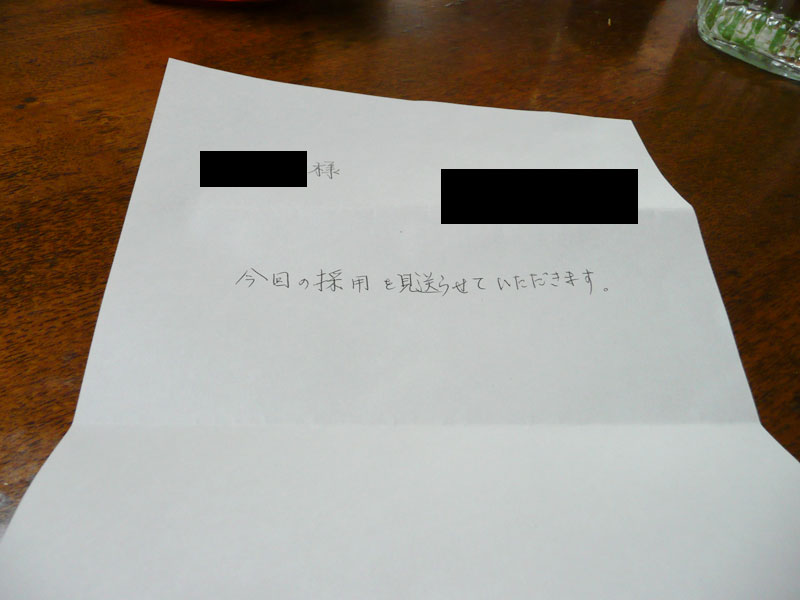 様
今回の採用を見送らせていただきます。